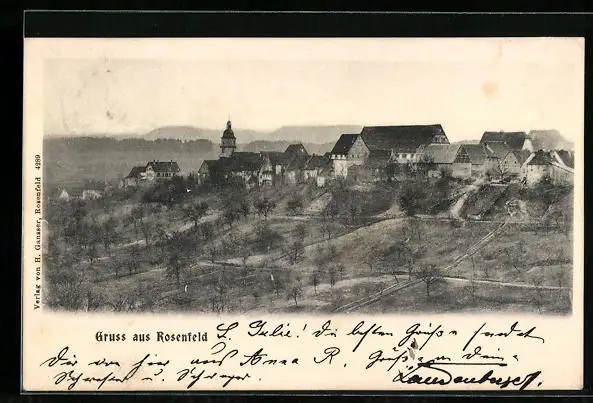 Verlag von H. Gansser, Rosenfeld 4289
Gruss aus Rosenfeld L. Julie! Die besten Grüße sendet
Dir von hier aus Anna R. Grüße an Dein
Schwester u. Schwager.